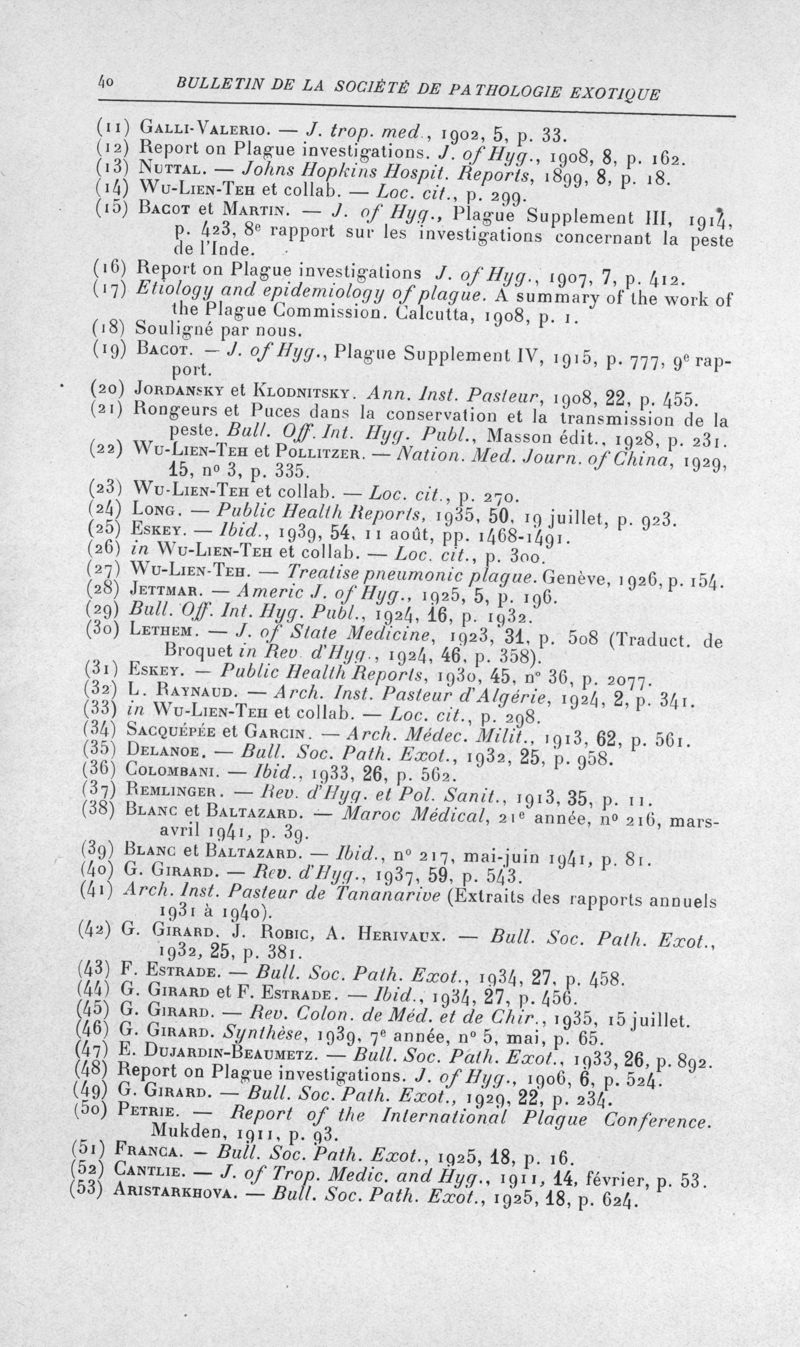 40 BULLETIN DE LA SOCIÉTÉ DE PATHOLOGIE EXOTIQUE
(11) GALLI-VALERIO. — J. trop. med., 1902, 5, p. 33.
(12) Report on Plague investigations. J. of Hyg., 1908, 8, p. 162.
(13) NUTTAL. — Johns Hopkins Hospit. Reports, 1899, 8, p. 18.
(14) WU-LIEN-TEH et collab. — Loc. cit., p. 299.
(15) BACOT et MARTIN. — J. of Hyg., Plague Supplement III, 1914,
p. 423, 8e rapport sur les investigations concernant la peste
de l'Inde.
(16) Report on Plague investigations J. of Hyg., 1907, 7, p. 412.
(17) Etiology and epidemiology of plague. A summary of the work of
the Plague Commission. Calcutta, 1908, p. 1.
(18) Souligné par nous.
(19) BACOT. — J. of Hyg., Plague Supplement IV, 1915, p. 777, 9e rap-
port.
(20) JORDANSKY et KLODNITSKY. Ann. Inst. Pasteur, 1908, 22, p. 455.
(21) Rongeurs et Puces dans la conservation et la transmission de la
peste. Bull. Off. Int. Hyg. Publ., Masson édit., 1928, p. 231.
(22) WU-LIEN-TEH et POLLITZER. — Nation. Med. Journ. of China, 1929,
15, no 3, p. 335.
(23) WU-LIEN-TEH et collab. — Loc. cit., p. 270.
(24) LONG. — Public Health Reports, 1935, 50, 19 juillet, p. 923.
(25) ESKEY. — Ibid., 1939, 54, 11 août, pp. 1468-1491.
(26) in WU-LIEN-TEH et collab. — Loc. cit., p. 300.
(27) WU-LIEN-TEH. — Treatise pneumonic plague. Genève, 1926, p. 154.
(28) JETTMAR. — Americ J. of Hyg., 1925, 5, p. 196.
(29) Bull. Off. Int. Hyg. Publ., 1924, 16, p. 1932.
(30) LETHEM. — J. of State Medicine, 1923, 31, p. 508 (Traduct. de
Broquet in Rev. d'Hyg., 1924, 46, p. 358).
(31) ESKEY. — Public Health Reports, 1930, 45, no 36, p. 2077.
(32) L. RAYNAUD. — Arch. Inst. Pasteur d'Algérie, 1924, 2, p. 341.
(33) in WU-LIEN-TEH et collab. — Loc. cit., p. 298.
(34) SACQUÉPÉE et GARCIN. — Arch. Médec. Milit., 1913, 62, p. 561.
(35) DELANOE. — Bull. Soc. Path. Exot., 1932, 25, p. 958.
(36) COLOMBANI. — Ibid., 1933, 26, p. 562.
(37) REMLINGER. — Rev. d'Hyg. et Pol. Sanit., 1913, 35, p. 11.
(38) BLANC et BALTAZARD. — Maroc Médical, 21e année, no 216, mars-
avril 1941, p. 39.
(39) BLANC et BALTAZARD. — Ibid., no 217, mai-juin 1941, p. 81.
(40) G. GIRARD. — Rev. d'Hyg., 1937, 59, p. 543.
(41) Arch. Inst. Pasteur de Tananarive (Extraits des rapports annuels
1931 à 1940).
(42) G. GIRARD. J. ROBIC, A. HERIVAUX. — Bull. Soc. Path. Exot.,
1932, 25, p. 381.
(43) F. ESTRADE. — Bull. Soc. Path. Exot., 1934, 27, p. 458.
(44) G. GIRARD et F. ESTRADE. — Ibid., 1934, 27, p. 456.
(45) G. GIRARD. — Rev. Colon. de Méd. et de Chir., 1935, 15 juillet.
(46) G. GIRARD. Synthèse, 1939, 7e année, no 5, mai, p. 65.
(47) E. DUJARDIN-BEAUMETZ. — Bull. Soc. Path. Exot., 1933, 26, p. 892.
(48) Report on Plague investigations. J. of Hyg., 1906, 6, p. 524.
(49) G. GIRARD. — Bull. Soc. Path. Exot., 1929, 22, p. 234.
(50) PETRIE. — Report of the International Plague Conference.
Mukden, 1911, p. 93.
(51) FRANCA. — Bull. Soc. Path. Exot., 1925, 18, p. 16.
(52) CANTLIE. — J. of Trop. Medic. and Hyg., 1911, 14, février, p. 53.
(53) ARISTARKHOVA. — Bull. Soc. Path. Exot., 1925, 18, p. 624.